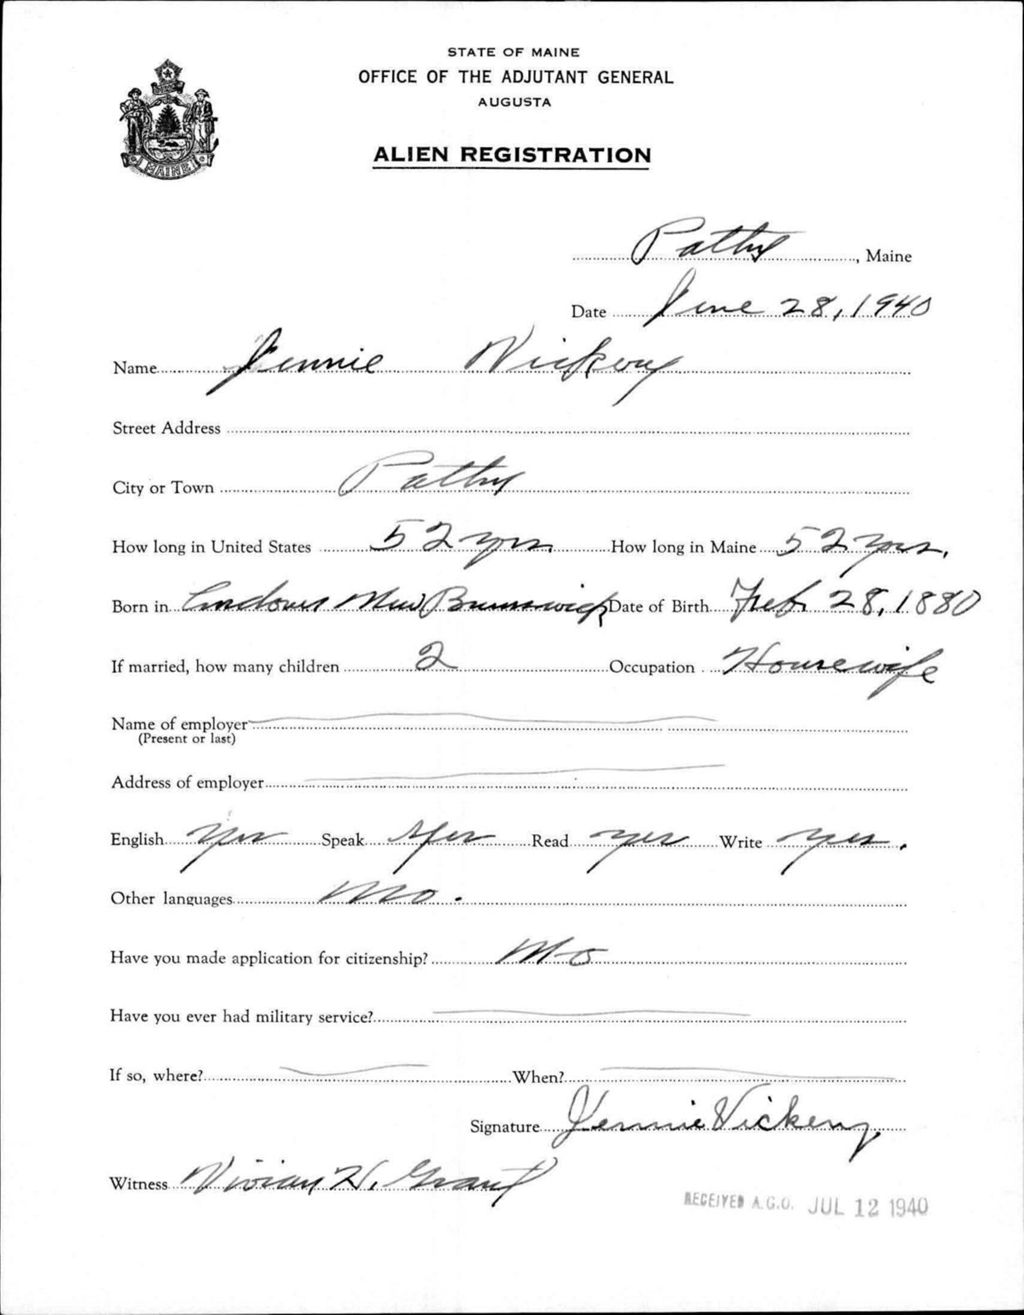 STATE OF MAINE
OFFICE OF THE ADJUTANT GENERAL
AUGUSTA
ALIEN REGISTRATION
MAINE
Patten, Maine
Date June 28, 1940
Name Jennie Vickery
Street Address
City or Town Patten
How long in United States 52 yrs. How long in Maine 52 yrs.
Born in New Brunswick Date of Birth Feb 28, 1880
If married, how many children 2 Occupation Housewife
Name of employer
(Present or last)
Address of employer
English Yes Speak Yes Read yes Write yes.
Other languages No.
Have you made application for citizenship? No
Have you ever had military service?
If so, where? When?
Signature Jennie Vickery
Witness Vivian H. Grant
RECEIVED A.G.O. JUL 12 1940